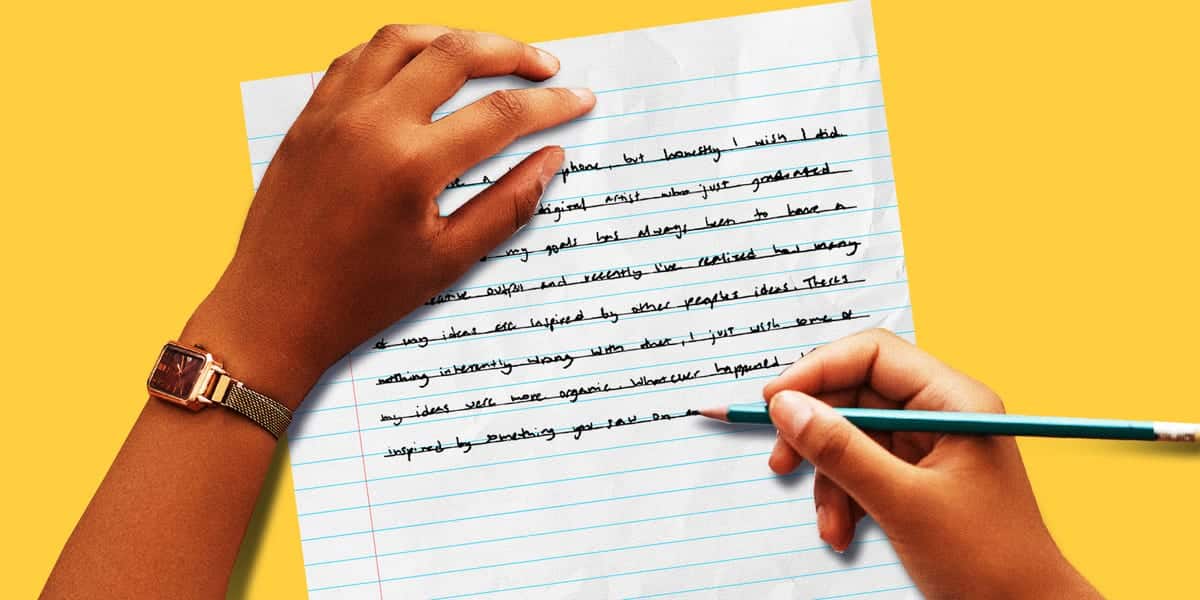 a phone, but honestly I wish I did.
digital artist who just generated
my goals has always been to have a
creative output and recently I've realized how many
of my ideas are inspired by other peoples ideas. There's
nothing inherently wrong with that, I just wish some of
my ideas were more organic. Whatever happened
inspired by something you saw on an